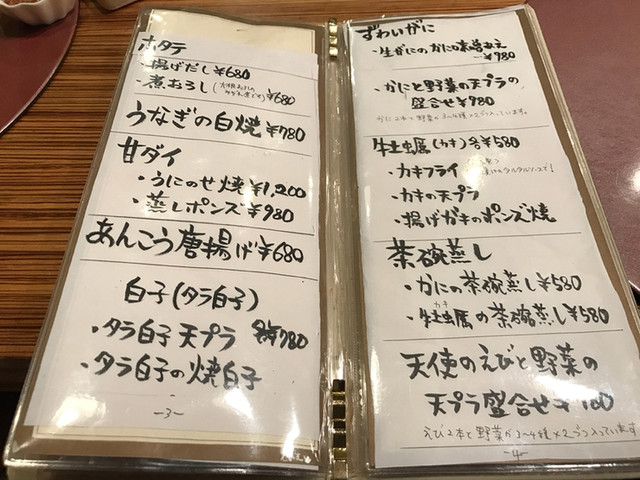 ホタテ
・揚げだし ¥680
・煮おろし ¥680
うなぎの白焼 ¥780
甘ダイ
・うにのせ焼 ¥1,200
・蒸しポンズ ¥980
あんこう唐揚げ ¥680
白子(タラ白子)
・タラ白子天プラ 各¥780
・タラ白子の焼白子
-3-
ずわいがに
・生がにのかに味噌あえ
¥980
・かにと野菜の天プラの
盛合せ ¥980
牡蠣(カキ) 各¥580
・カキフライ
・カキの天プラ
・揚げガキのポンズ焼
茶碗蒸し
・かにの茶碗蒸し ¥580
カキ
・牡蠣の茶碗蒸し ¥580
天使のえびと野菜の
天プラ盛合せ
えび2本と野菜が3〜4種×2づつ入っています
-4-